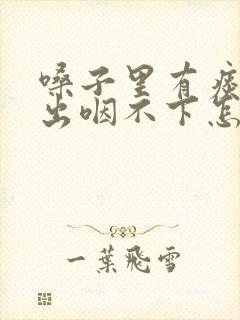 嗓子里有痰
出咽不下怎
一葉飛雪